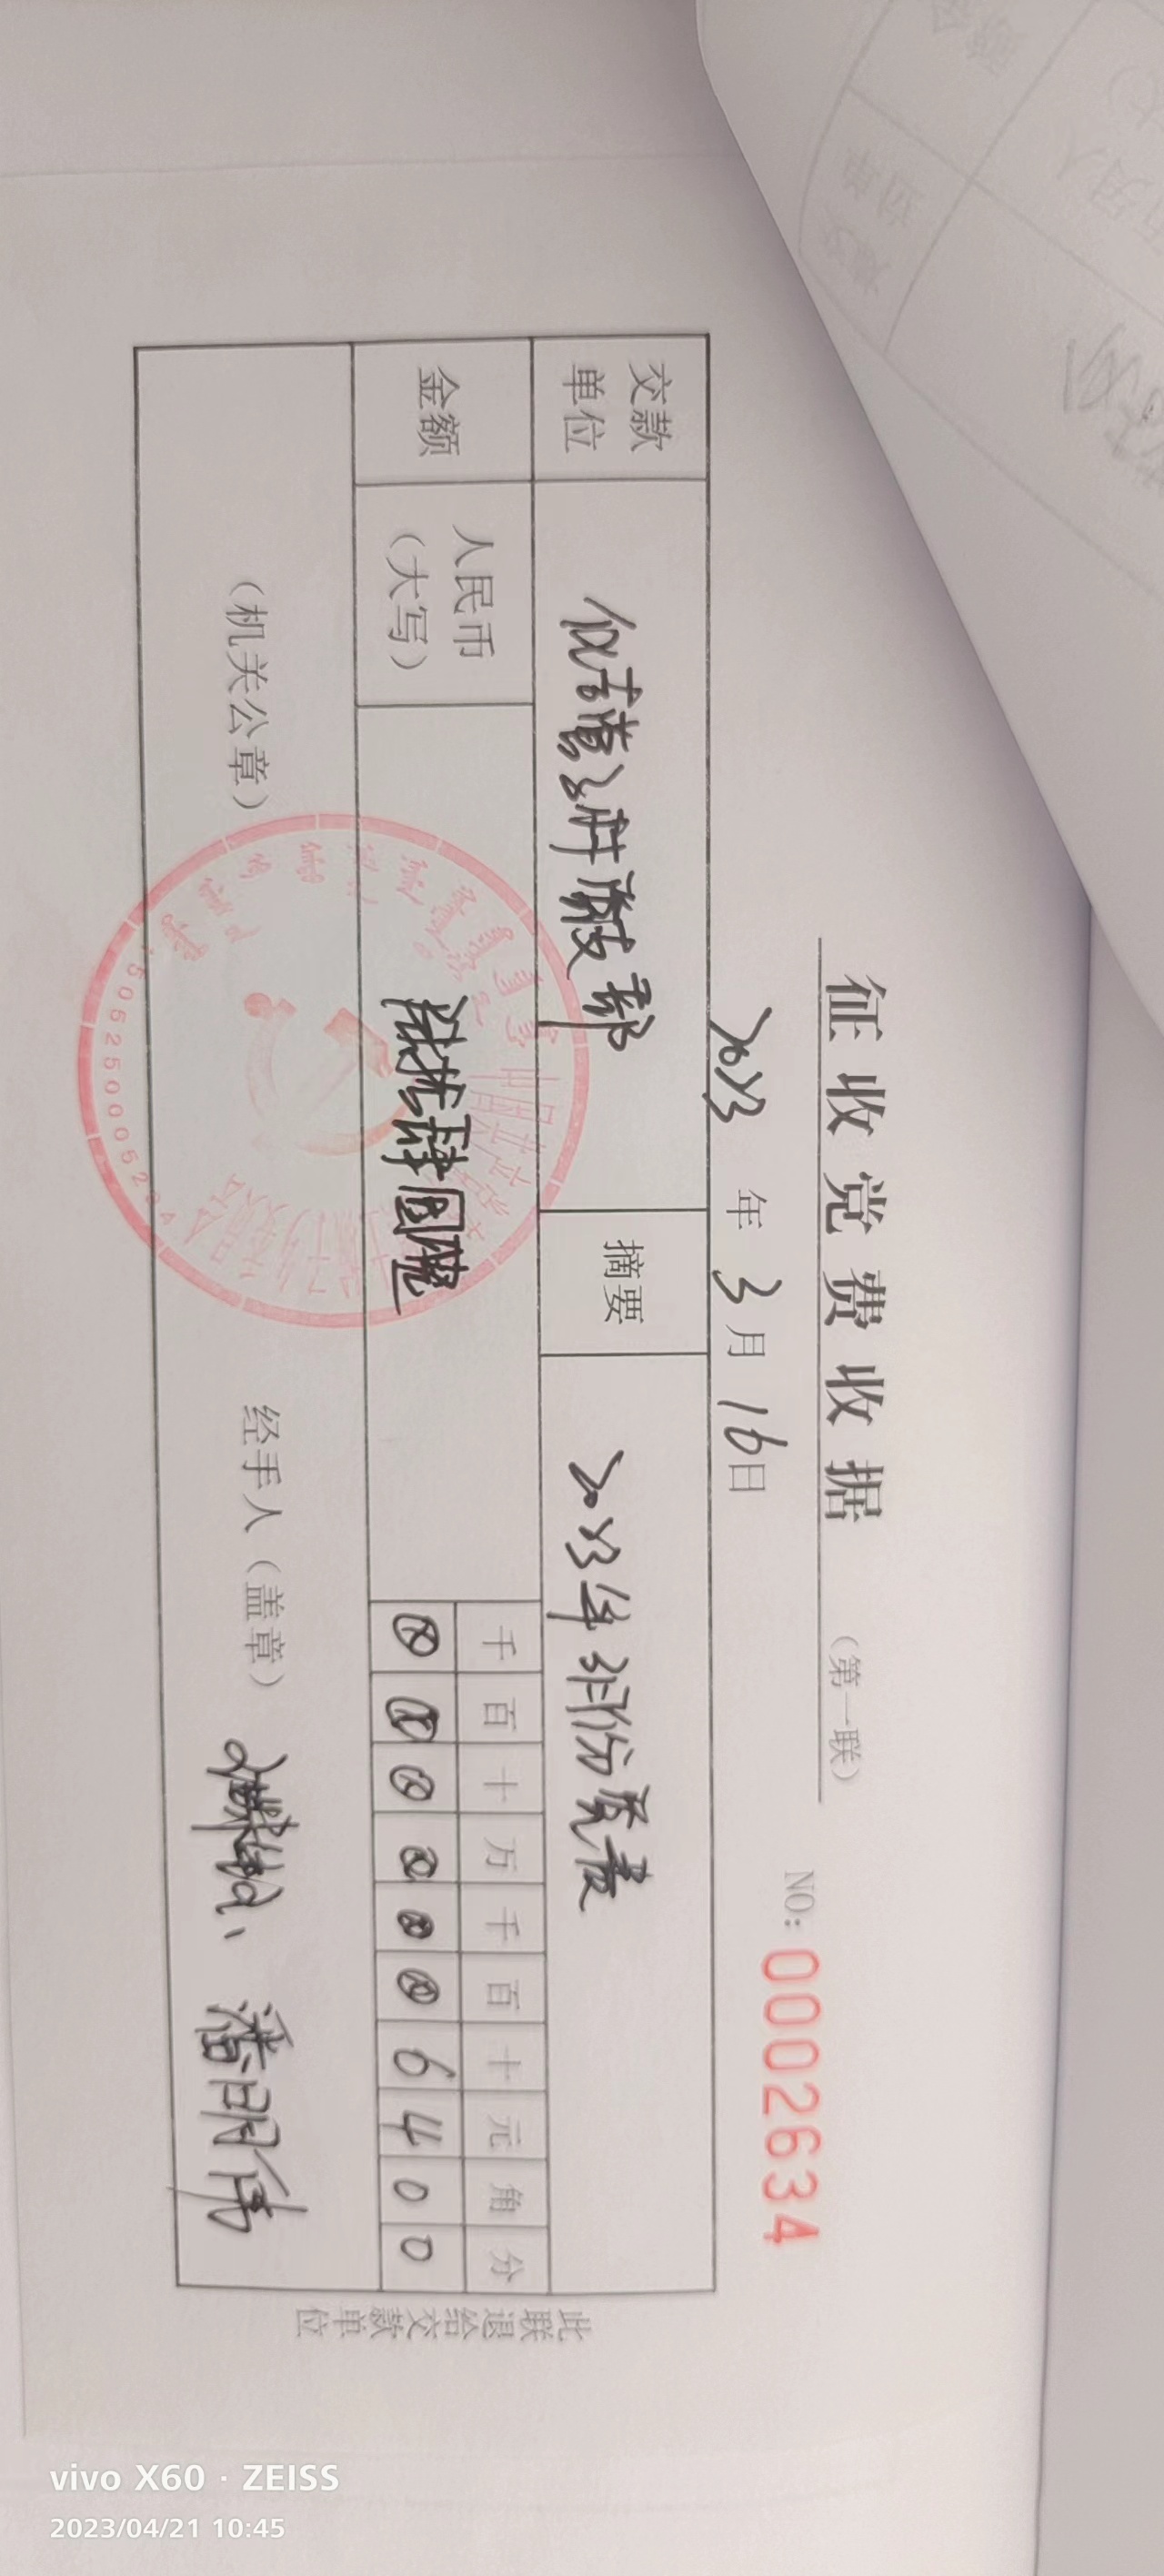 征收党费收据 (第一联)
NO: 0002634
2023 年 3 月 16 日
交款单位
摘要 2023年3月份党费
金额 人民币(大写) 陆拾肆圆整
千 百 十 万 千 百 十 元 角 分
⊗ ⊗ ⊗ ⊗ ⊗ ⊗ 6 4 0 0
(机关公章) 经手人(盖章) 潘明伟
此联退给交款单位
vivo X60 · ZEISS
2023/04/21 10:45